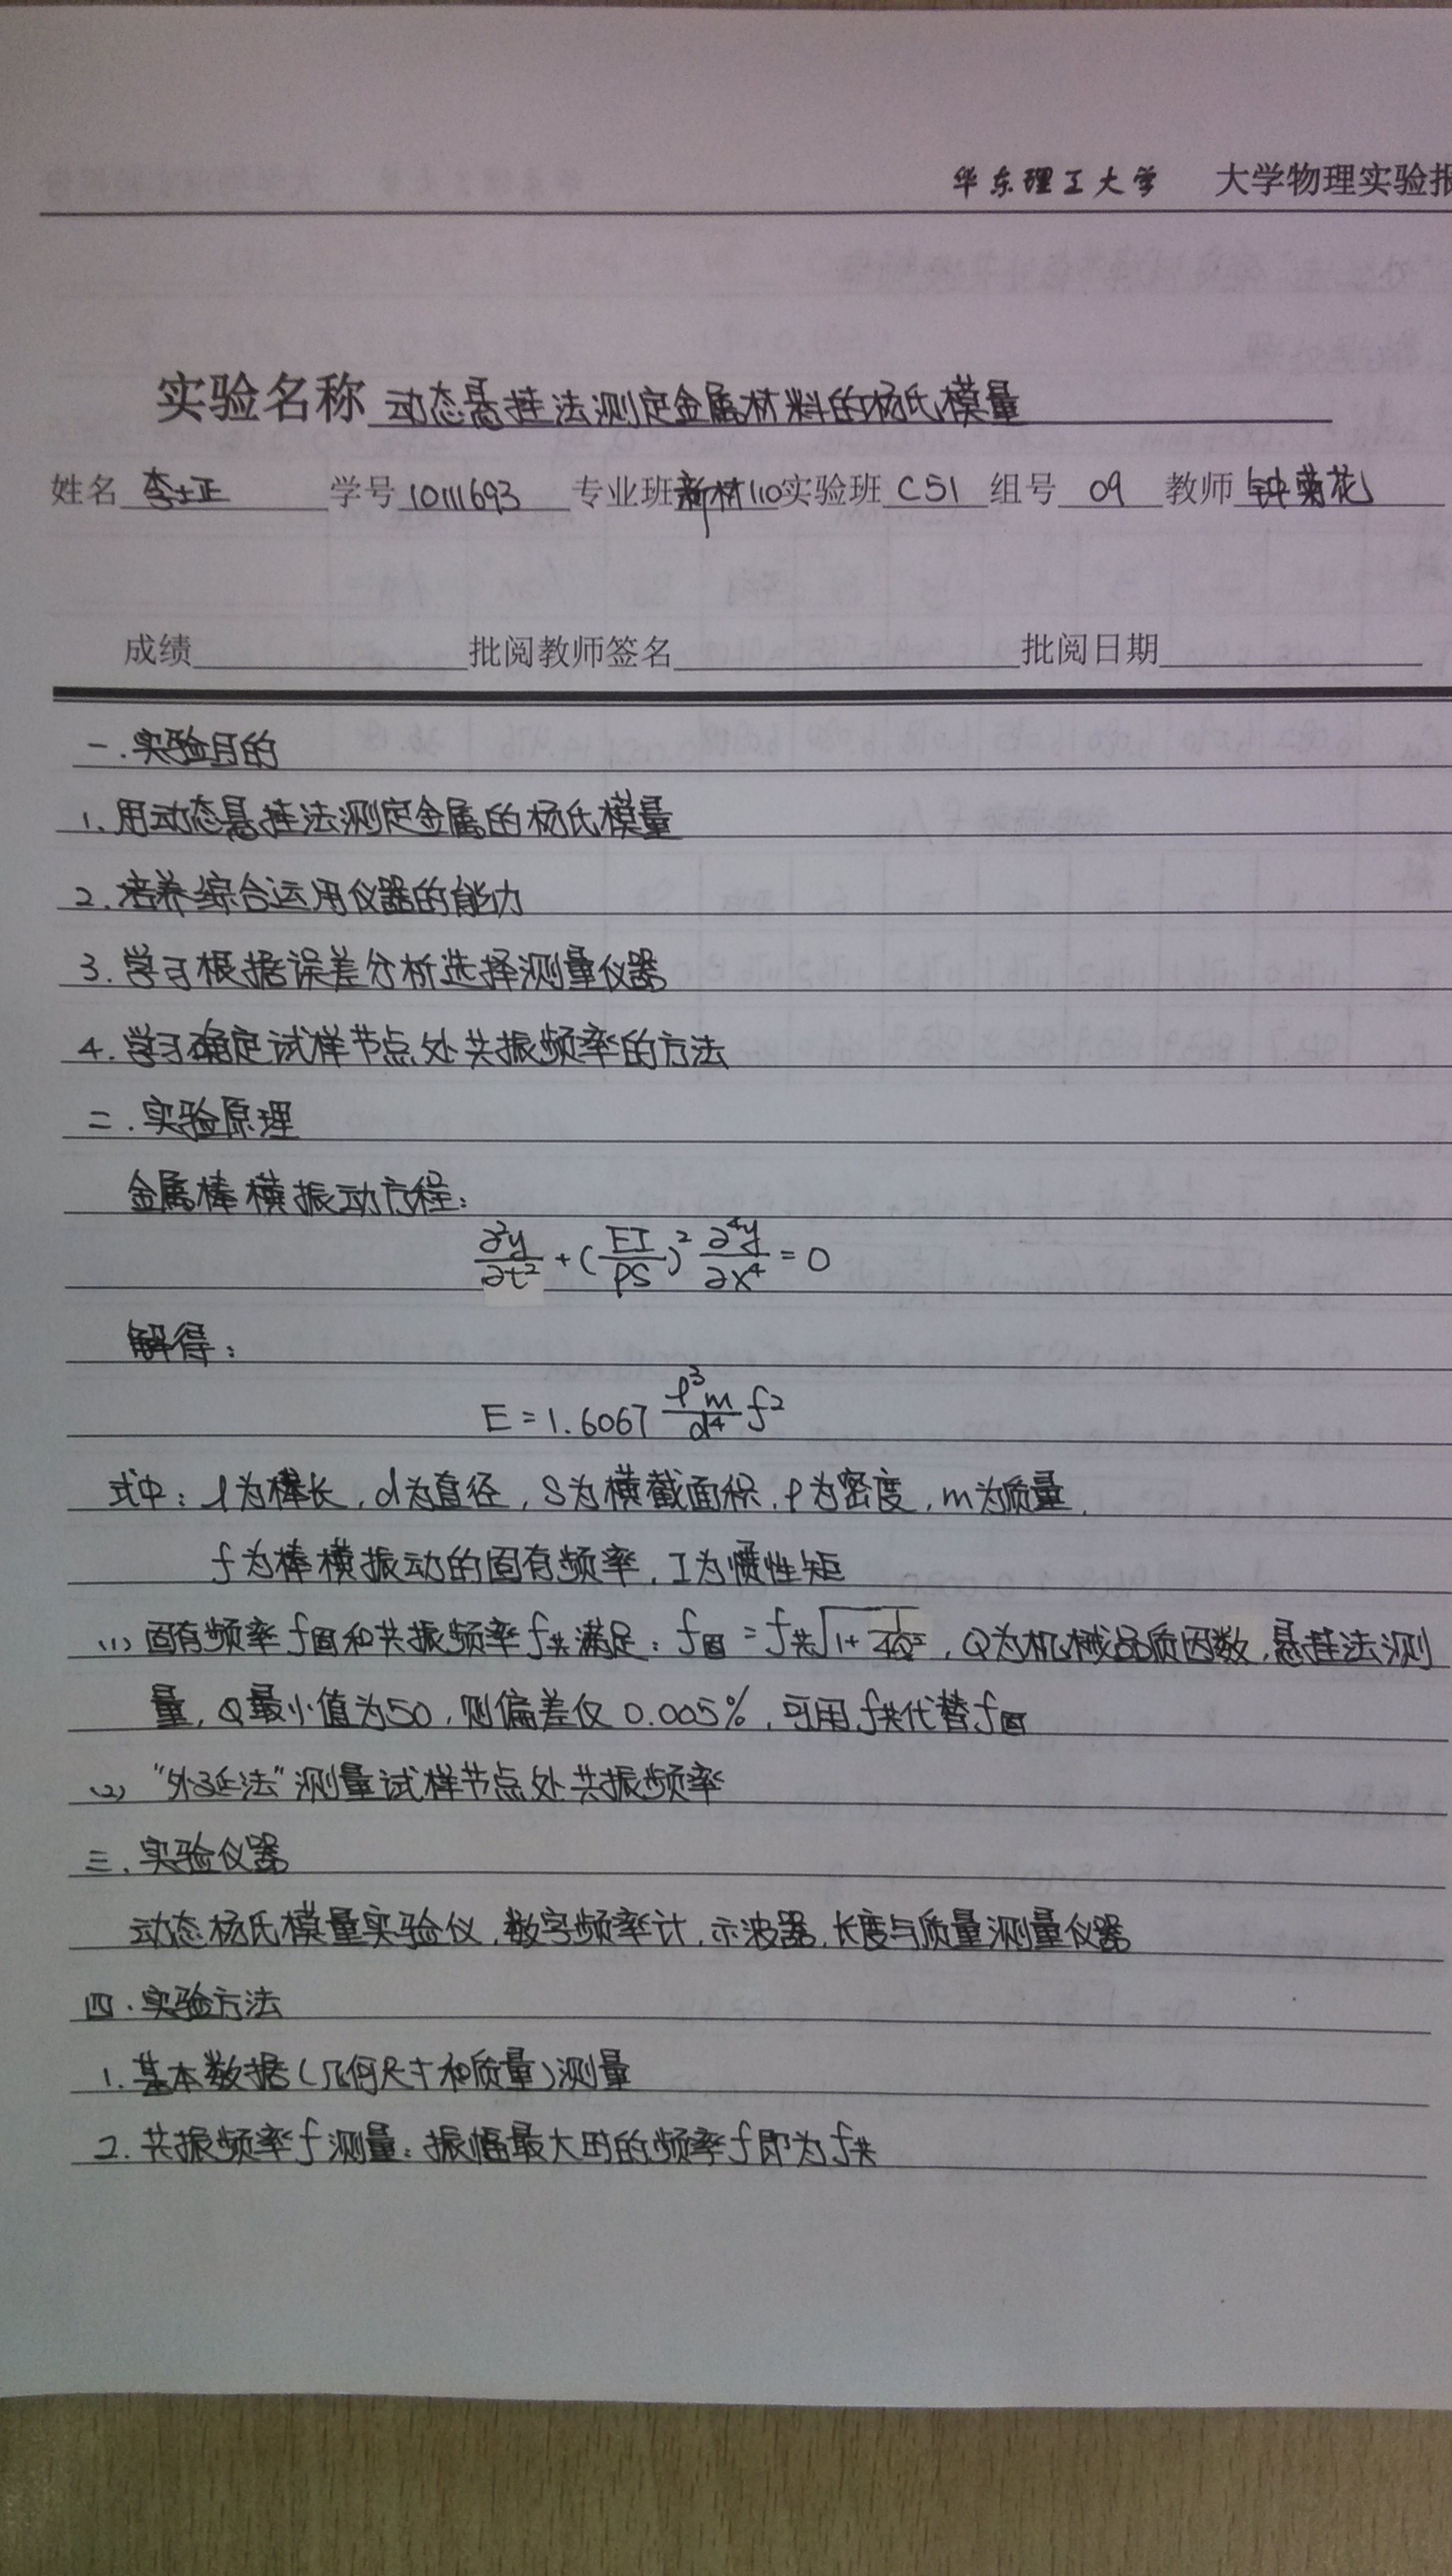 华东理工大学 大学物理实验报
实验名称 动态悬挂法测定金属材料的杨氏模量
姓名 李士正 学号 10111693 专业班 新材110 实验班 C51 组号 09 教师 钟菊花
成绩 批阅教师签名 批阅日期
一.实验目的
1.用动态悬挂法测定金属的杨氏模量
2.培养综合运用仪器的能力
3.学习根据误差分析选择测量仪器
4.学习确定试样节点处共振频率的方法
二.实验原理
金属棒横振动方程:
∂²y/∂t² + (EI/ρS)² ∂⁴y/∂x⁴ = 0
解得:
E = 1.6067 l³m/d⁴ f²
式中: l为棒长, d为直径, S为横截面积, ρ为密度, m为质量,
f为棒横振动的固有频率, I为惯性矩
(1) 固有频率f固和共振频率f共满足: f固 = f共√(1+1/4Q²), Q为机械品质因数, 悬挂法测
量, Q最小值为50, 则偏差仅0.005%, 可用f共代替f固
(2) "外延法"测量试样节点处共振频率
三.实验仪器
动态杨氏模量实验仪, 数字频率计, 示波器, 长度与质量测量仪器
四.实验方法
1.基本数据(几何尺寸和质量)测量
2.共振频率f测量: 振幅最大时的频率f即为f共